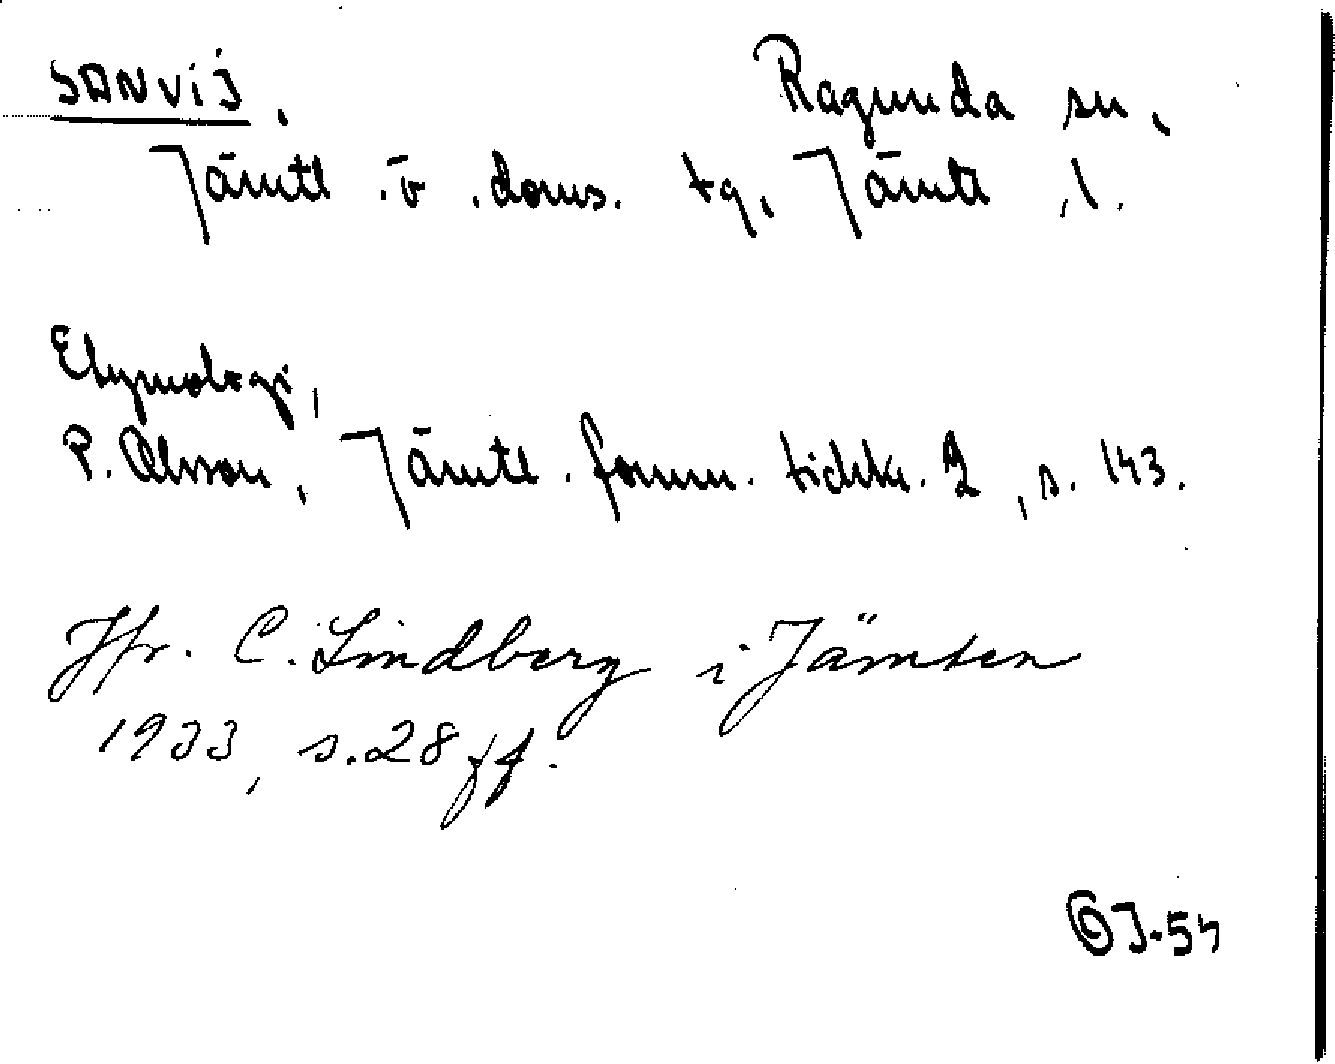 SANViJ. Ragunda sn.
Jämtl. ö. doms. tg. Jämtl. l.
Etymologi,
P. Olsson, Jämtl. fornm. tidskr. 2, s. 143.
Jfr. C. Lindberg i Jämten
1933, s. 28 ff.
J-54